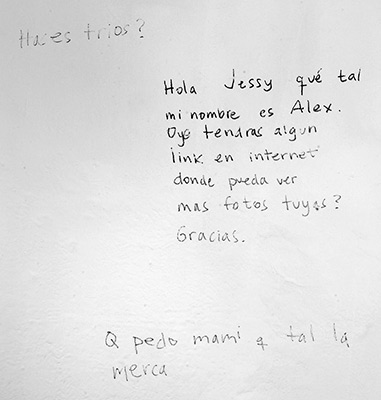 Haces trios?
Hola Jessy qué tal
mi nombre es Alex.
Oye tendras algun
link en internet
donde pueda ver
mas fotos tuyas?
Gracias.
Q pedo mami q tal la
merca